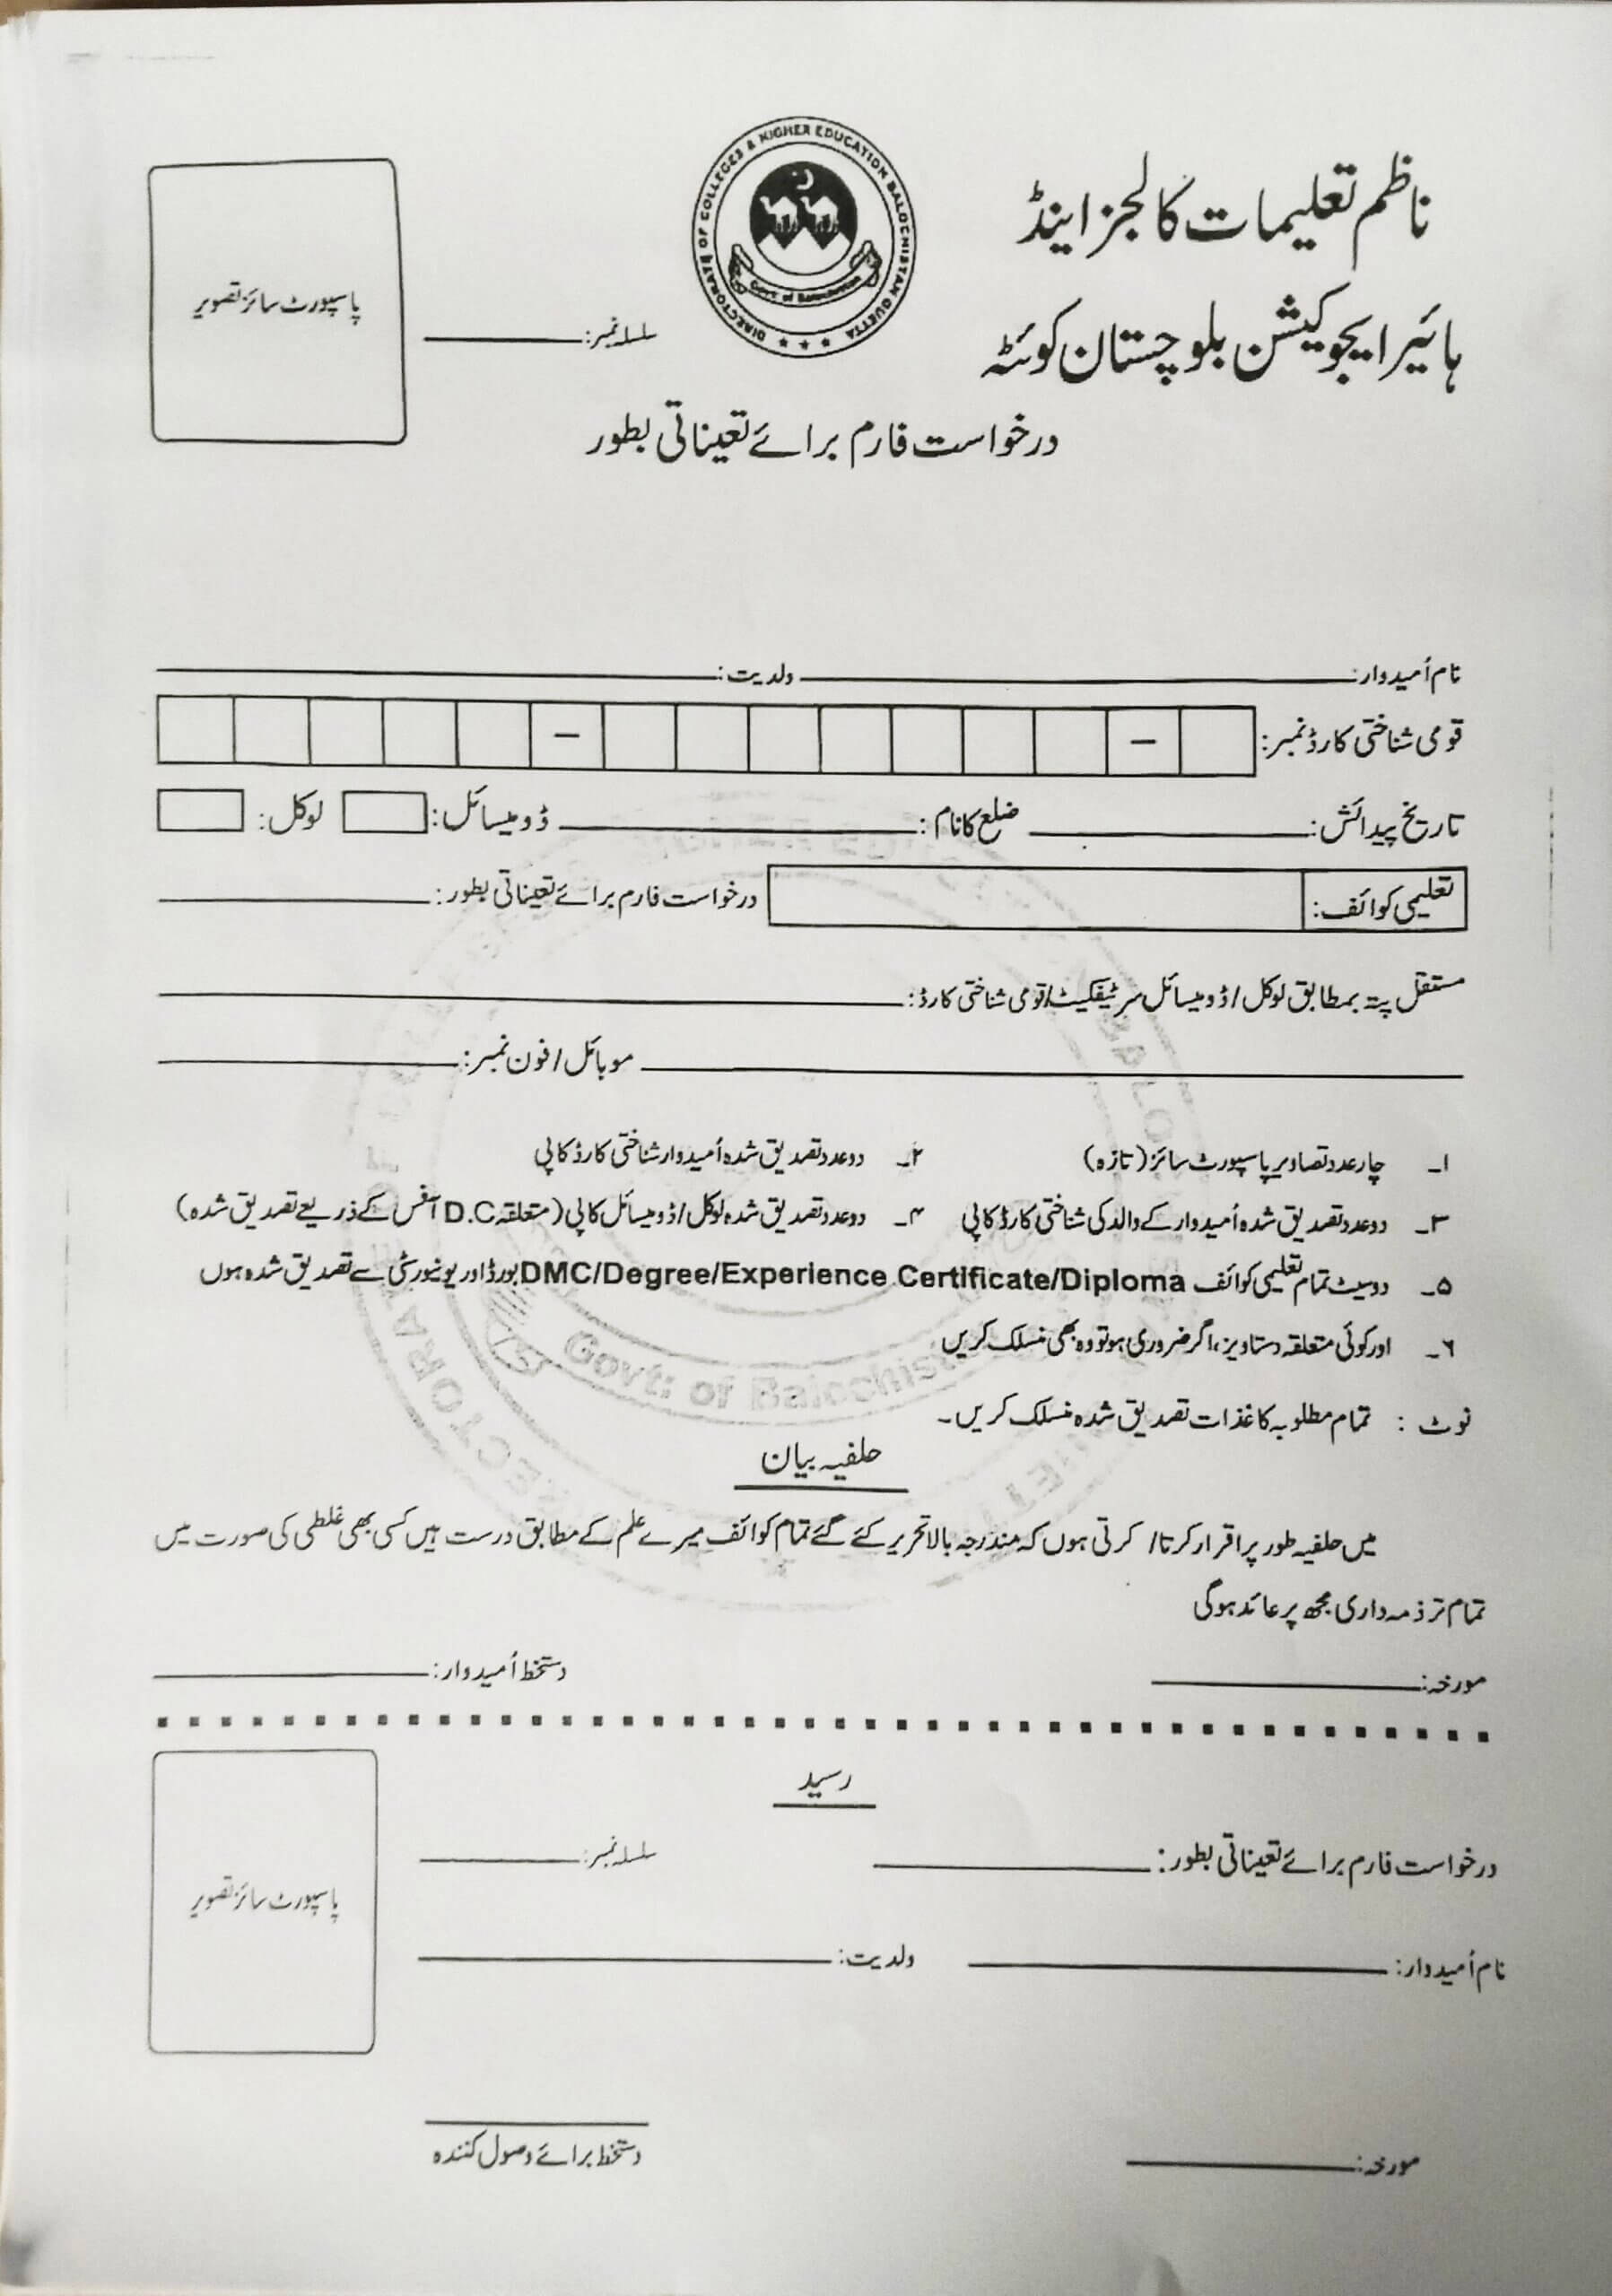 ناظم تعلیمات کالجز اینڈ
ہائیر ایجوکیشن بلوچستان کوئٹہ
DIRECTORATE OF COLLEGES & HIGHER EDUCATION BALOCHISTAN QUETTA
Govt: of Balochistan
سلسلہ نمبر:
پاسپورٹ سائز تصویر
درخواست فارم برائے تعیناتی بطور
نام اُمیدوار: ولدیت:
قومی شناختی کارڈ نمبر: – –
تاریخ پیدائش: ضلع کا نام: ڈومیسائل: لوکل:
تعلیمی کوائف: درخواست فارم برائے تعیناتی بطور:
مستقل پتہ بمطابق لوکل/ڈومیسائل سرٹیفکیٹ/قومی شناختی کارڈ:
موبائل/فون نمبر:
۱۔ چار عدد تصاویر پاسپورٹ سائز (تازہ) ۲۔ دو عدد تصدیق شدہ اُمیدوار شناختی کارڈ کاپی
۳۔ دو عدد تصدیق شدہ اُمیدوار کے والد کی شناختی کارڈ کاپی ۴۔ دو عدد تصدیق شدہ لوکل/ڈومیسائل کاپی (متعلقہ D.C آفس کے ذریعے تصدیق شدہ)
۵۔ دو سیٹ تمام تعلیمی کوائف DMC/Degree/Experience Certificate/Diploma بورڈ اور یونیورسٹی سے تصدیق شدہ ہوں
۶۔ اور کوئی متعلقہ دستاویز، اگر ضروری ہو تو وہ بھی منسلک کریں
Govt: of Balochistan
نوٹ : تمام مطلوبہ کاغذات تصدیق شدہ منسلک کریں۔
حلفیہ بیان
میں حلفیہ طور پر اقرار کرتا/ کرتی ہوں کہ مندرجہ بالا تحریر کئے گئے تمام کوائف میرے علم کے مطابق درست ہیں کسی بھی غلطی کی صورت میں
تمام تر ذمہ داری مجھ پر عائد ہوگی
مورخہ: دستخط اُمیدوار:
رسید
درخواست فارم برائے تعیناتی بطور: سلسلہ نمبر:
پاسپورٹ سائز تصویر
نام اُمیدوار: ولدیت:
دستخط برائے وصول کنندہ
مورخہ: